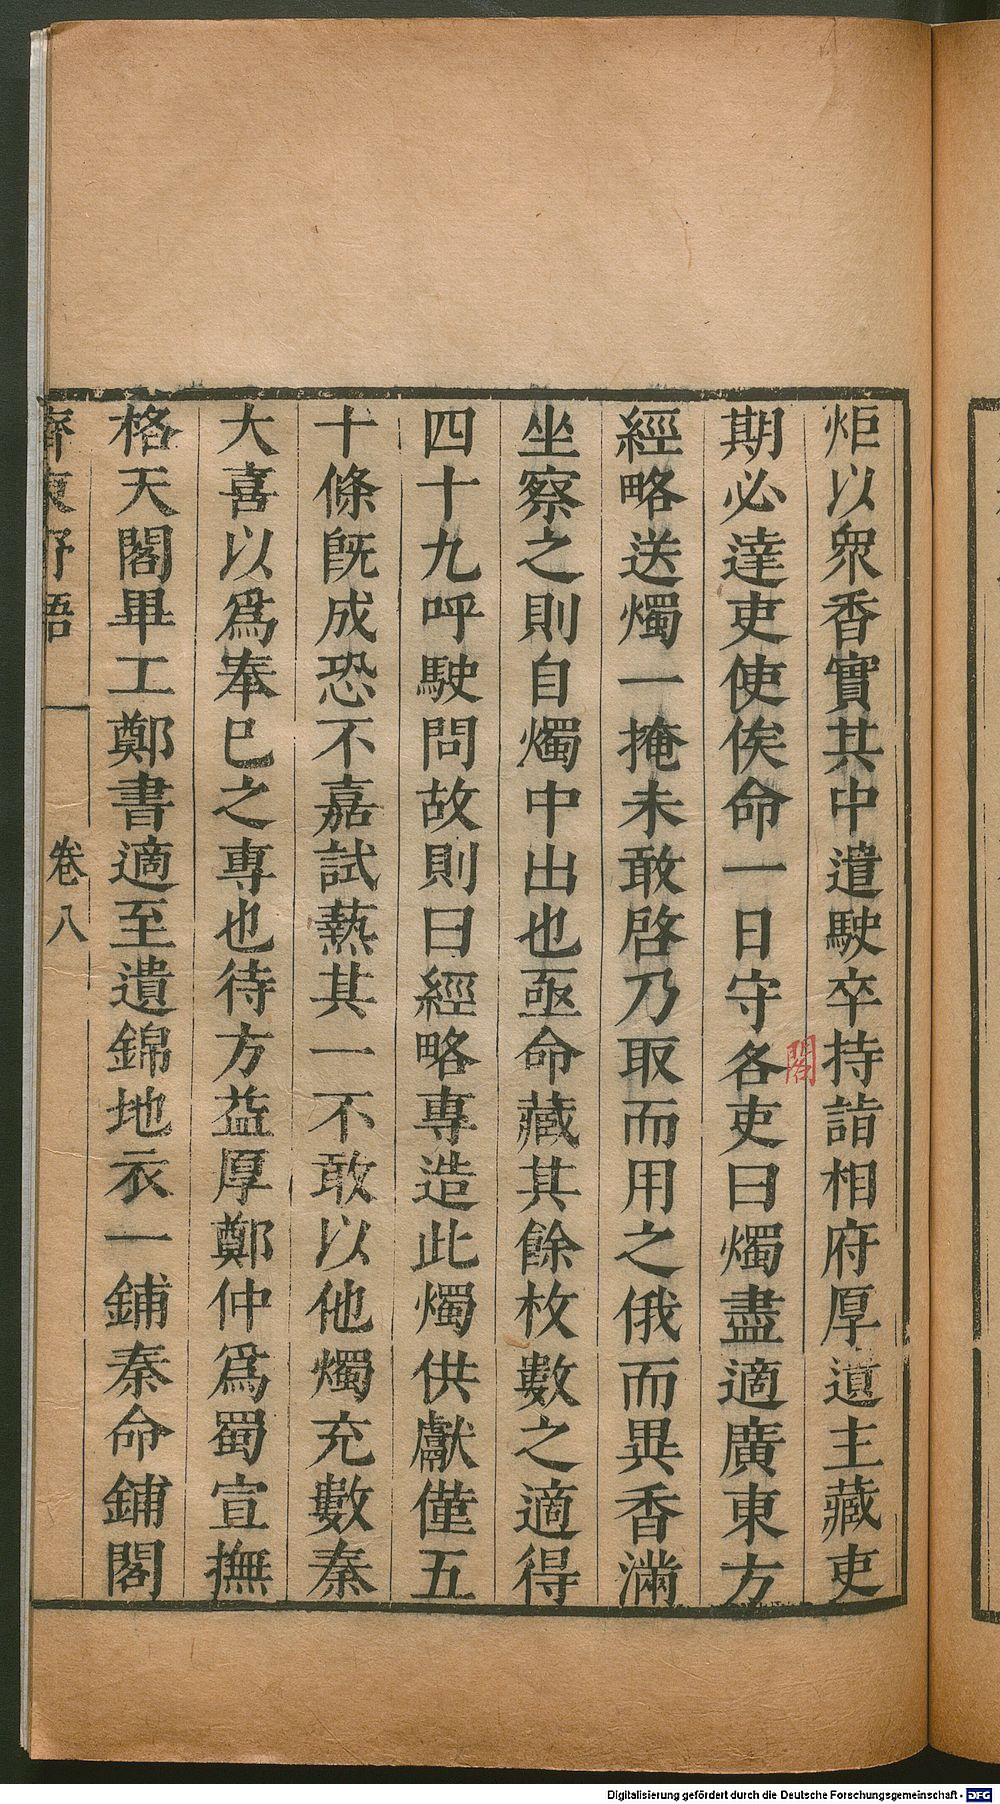 炬以衆香實其中遣駛卒持詣相府厚遺主藏吏
期必達吏使俟命一日守各吏曰燭盡適廣東方
閣
經略送燭一掩未敢啓乃取而用之俄而異香滿
坐察之則自燭中出也亟命藏其餘枚數之適得
四十九呼駛問故則曰經略專造此燭供獻僅五
十條旣成恐不嘉試爇其一不敢以他燭充數秦
大喜以爲奉巳之專也待方益厚鄭仲爲蜀宣撫
格天閣畢工鄭書適至遺錦地衣一鋪秦命鋪閣
齊東野語 卷八
Digitalisierung gefördert durch die Deutsche Forschungsgemeinschaft - DFG